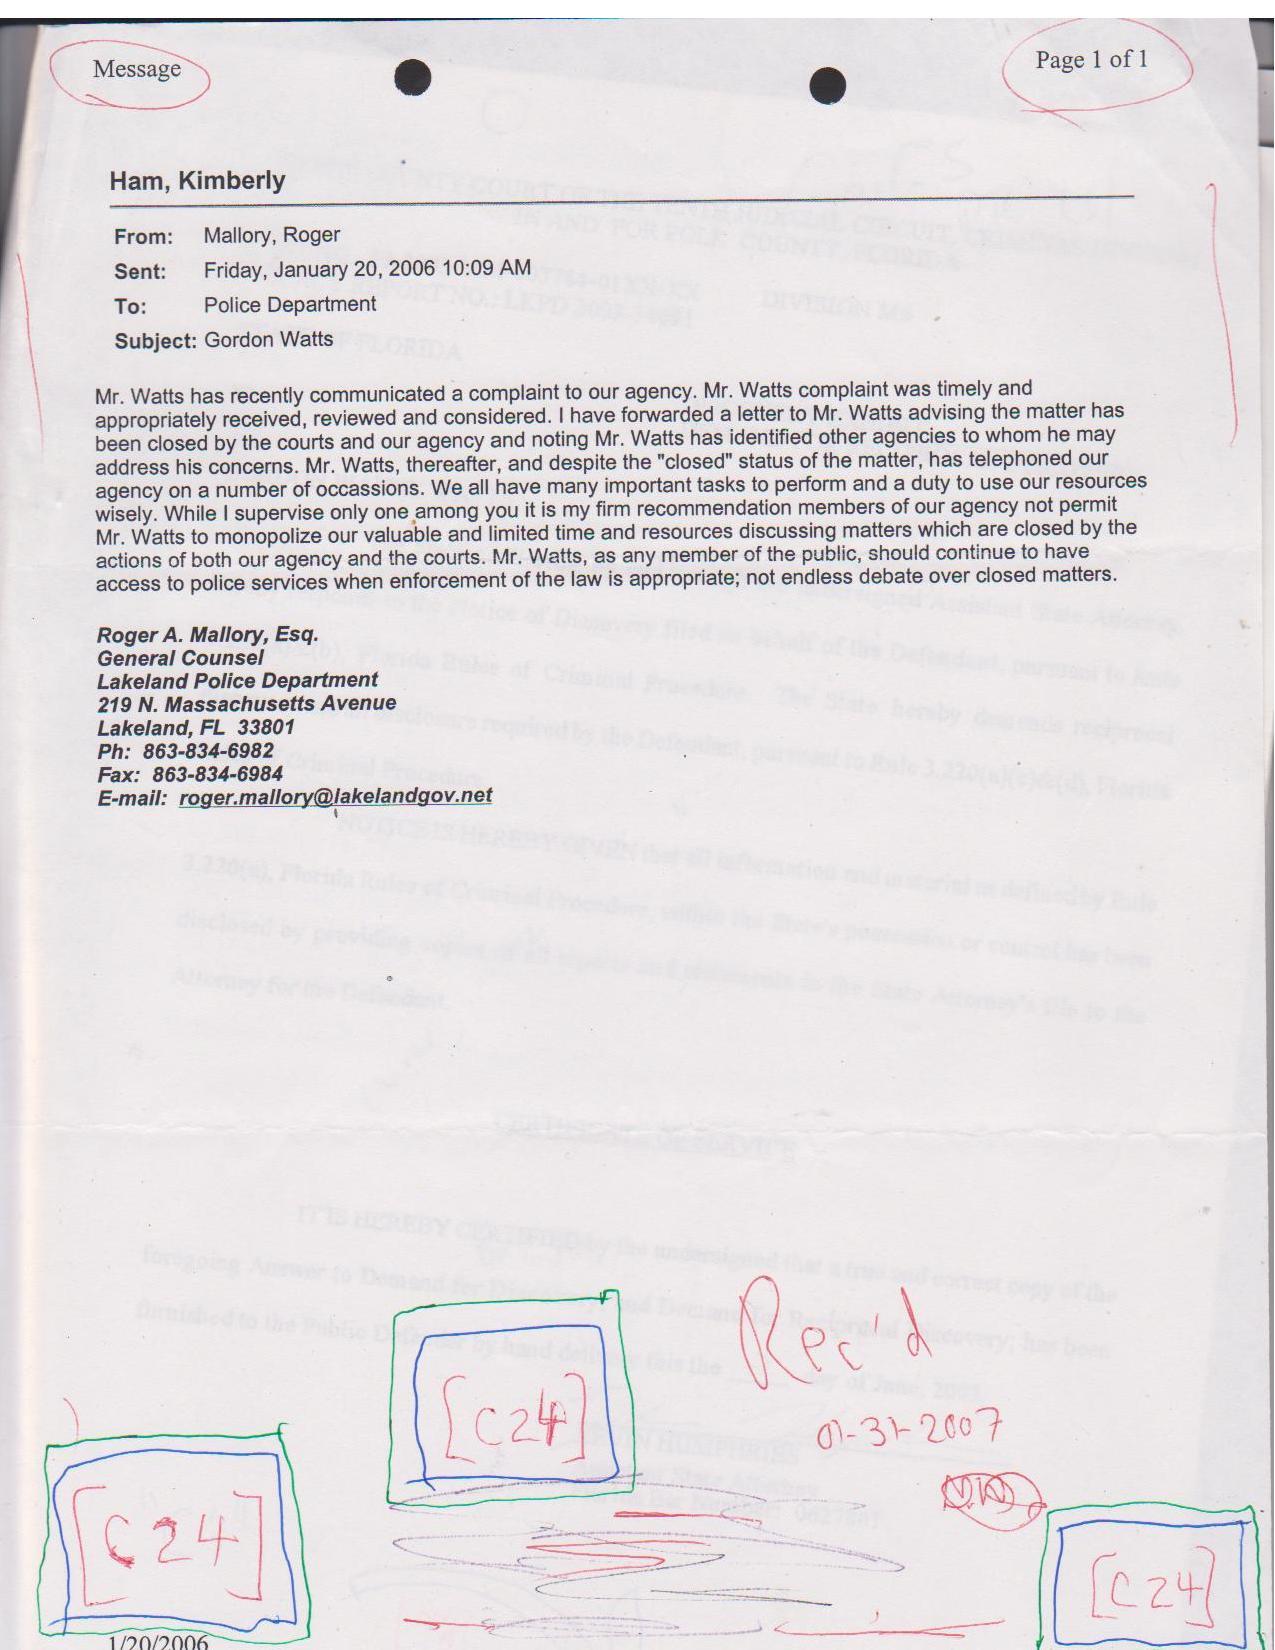 Message
Page 1 of 1
Ham, Kimberly
From: Mallory, Roger
Sent: Friday, January 20, 2006 10:09 AM
To: Police Department
Subject: Gordon Watts
Mr. Watts has recently communicated a complaint to our agency. Mr. Watts complaint was timely and
appropriately received, reviewed and considered. I have forwarded a letter to Mr. Watts advising the matter has
been closed by the courts and our agency and noting Mr. Watts has identified other agencies to whom he may
address his concerns. Mr. Watts, thereafter, and despite the "closed" status of the matter, has telephoned our
agency on a number of occassions. We all have many important tasks to perform and a duty to use our resources
wisely. While I supervise only one among you it is my firm recommendation members of our agency not permit
Mr. Watts to monopolize our valuable and limited time and resources discussing matters which are closed by the
actions of both our agency and the courts. Mr. Watts, as any member of the public, should continue to have
access to police services when enforcement of the law is appropriate; not endless debate over closed matters.
Roger A. Mallory, Esq.
General Counsel
Lakeland Police Department
219 N. Massachusetts Avenue
Lakeland, FL 33801
Ph: 863-834-6982
Fax: 863-834-6984
E-mail: roger.mallory@lakelandgov.net
Rec'd
01-31-2007
[C24]
[C24]
[C24]
1/20/2006